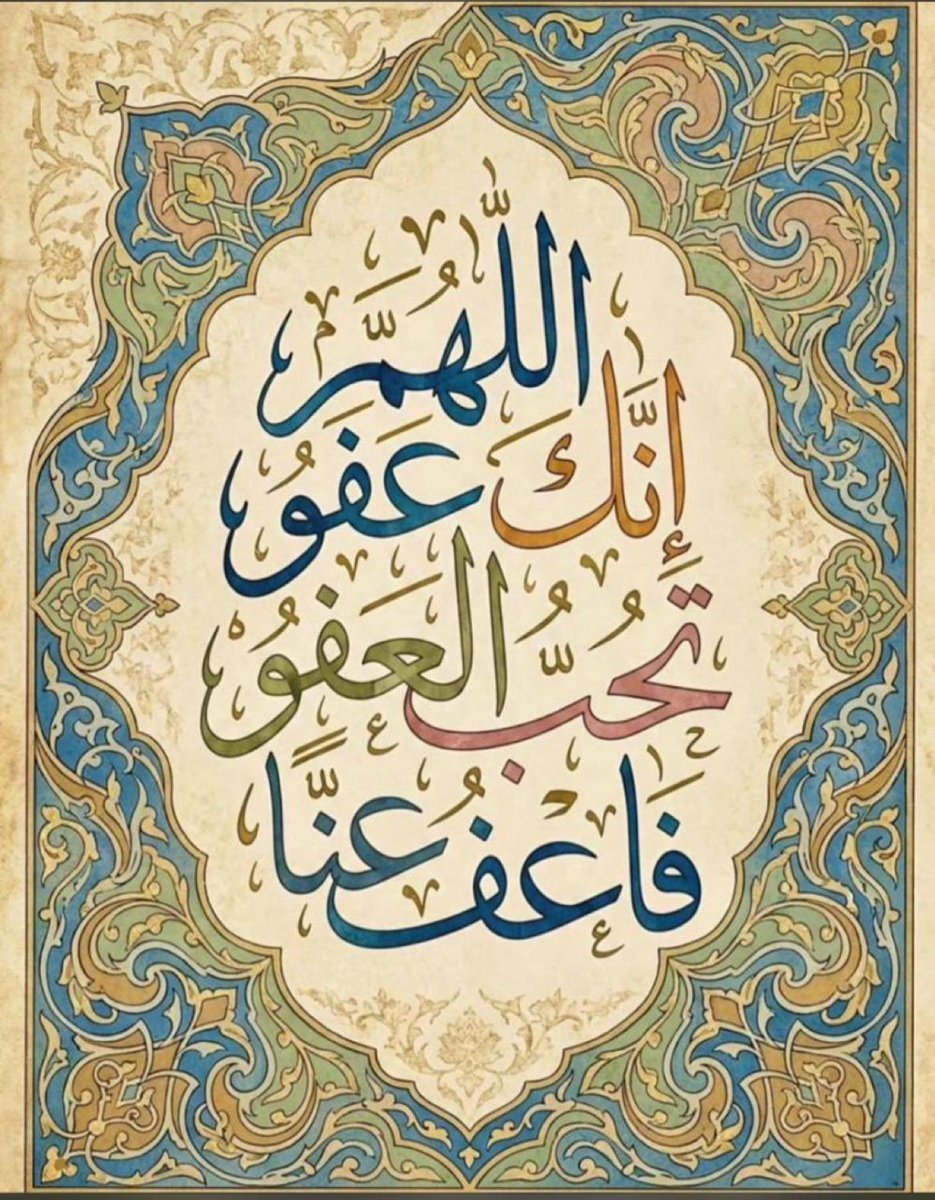 اللَّهُمَّ
إِنَّكَ عَفُوٌّ
تُحُبُّ العَفُوُ
فَاعْفُ عَنَّا